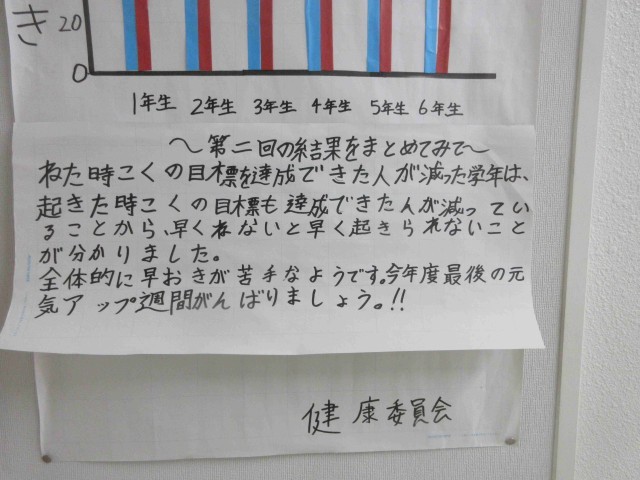 き
20
0
1年生 2年生 3年生 4年生 5年生 6年生
〜第二回の結果をまとめてみて〜
ねた時こくの目標を達成できた人が減った学年は、
起きた時こくの目標も達成できた人が減ってい
ることから、早くねないと早く起きられないこと
が分かりました。
全体的に早おきが苦手なようです。今年度最後の元
気アップ週間がんばりましょう。!!
健康委員会